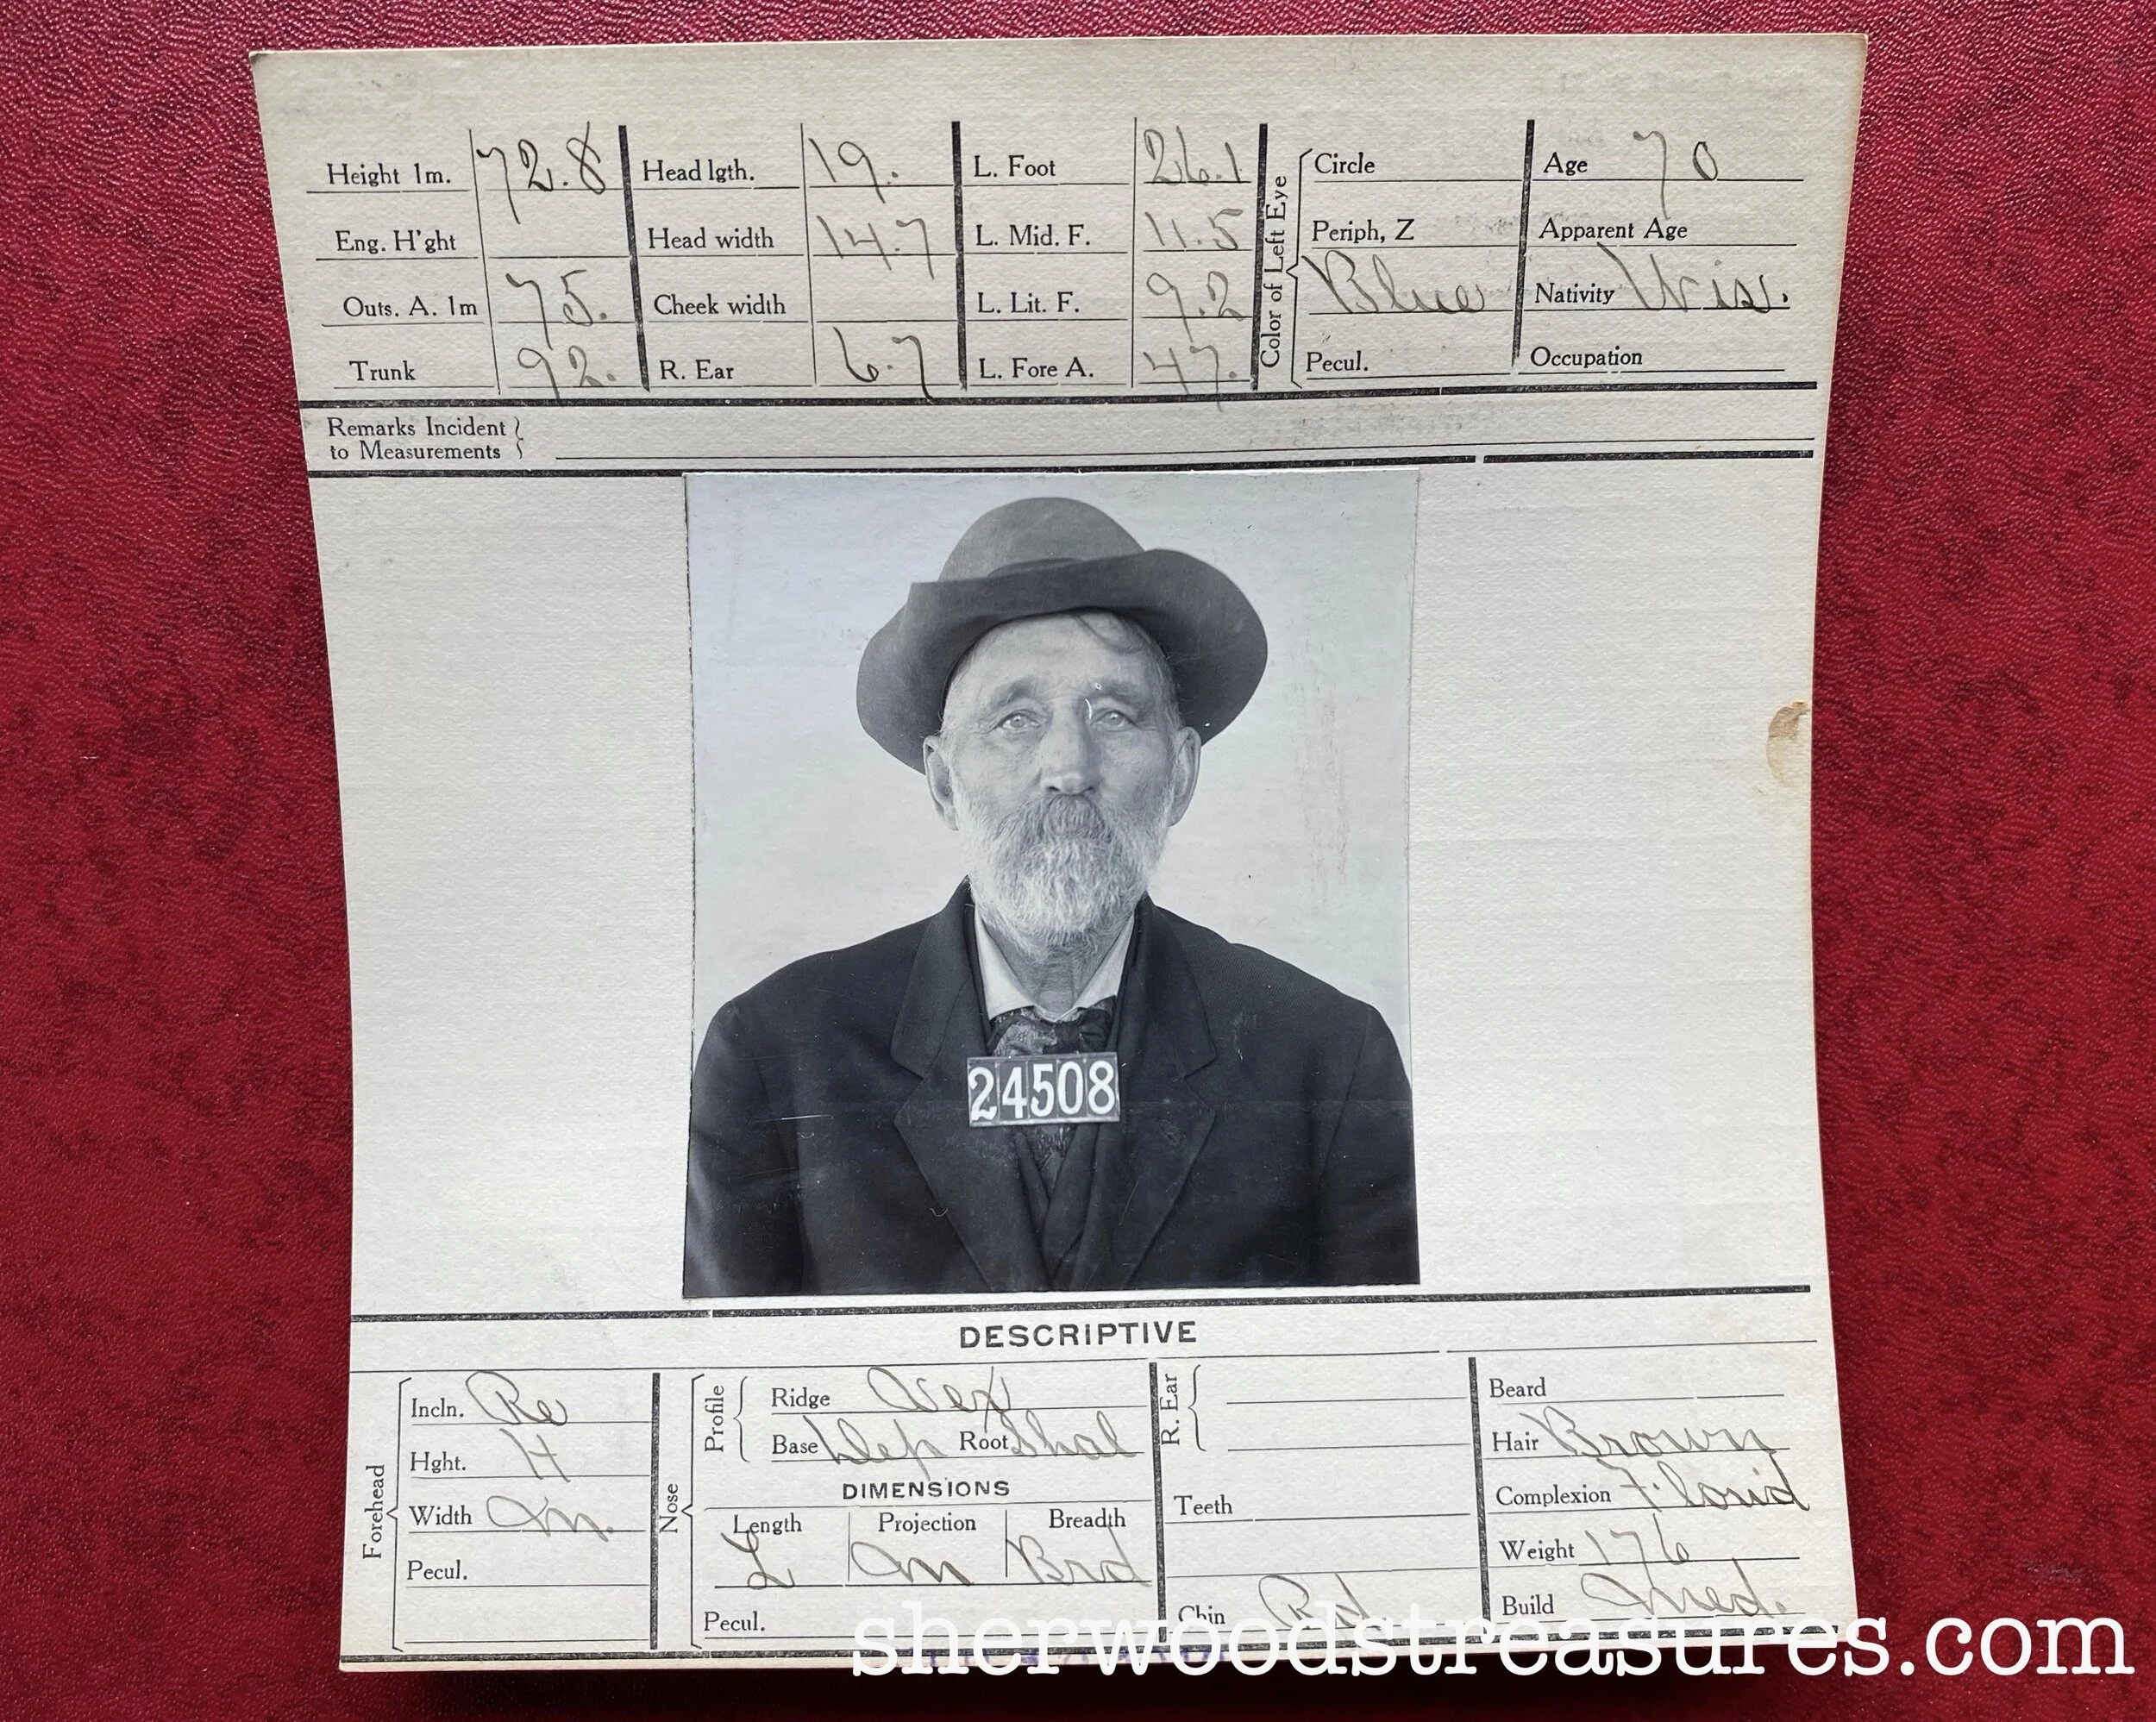 Height 1m. 72.8 Head lgth. 19. L. Foot 26.1 Circle Age 70
Eng. H'ght Head width 14.7 L. Mid. F. 11.5 Periph, Z Apparent Age
Outs. A. 1m 75. Cheek width L. Lit. F. 9.2 Blue Nativity Wis.
Trunk 92. R. Ear 6.7 L. Fore A. 47. Pecul. Occupation
Color of Left Eye
Remarks Incident
to Measurements
24508
DESCRIPTIVE
Forehead
Incln. Re
Hght. H
Width m.
Pecul.
Nose
Profile
Ridge Vex
Base Dep Root Shal
DIMENSIONS
Length Projection Breadth
L m Brd
Pecul.
R. Ear
Teeth
Chin Rd
Beard
Hair Brown
Complexion Florid
Weight 176
Build Med.
sherwoodstreasures.com